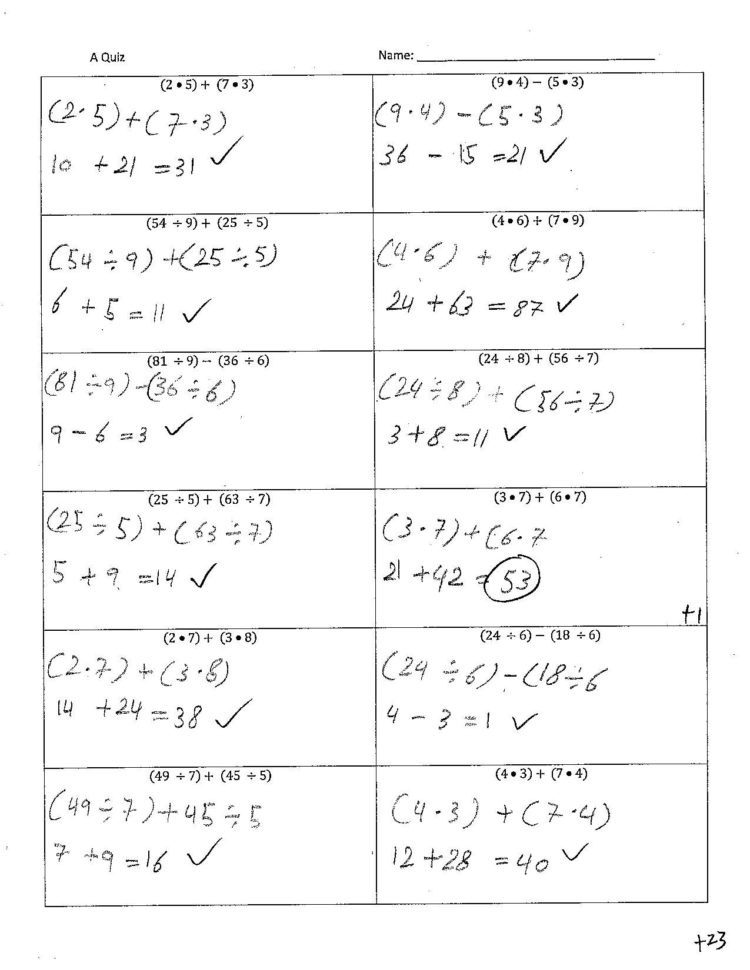 A Quiz
Name:
(2 • 5) + (7 • 3)
(2 · 5) + ( 7 · 3)
10 + 21 = 31 ✓
(9 • 4) – (5 • 3)
(9 · 4) - (5 · 3)
36 - 15 = 21 ✓
(54 ÷ 9) + (25 ÷ 5)
(54 ÷ 9) + (25 ÷ 5)
6 + 5 = 11 ✓
(4 • 6) + (7 • 9)
(4 · 6) + (7 · 9)
24 + 63 = 87 ✓
(81 ÷ 9) – (36 ÷ 6)
(81 ÷ 9) - (36 ÷ 6)
9 - 6 = 3 ✓
(24 ÷ 8) + (56 ÷ 7)
(24 ÷ 8) + (56 ÷ 7)
3 + 8 = 11 ✓
(25 ÷ 5) + (63 ÷ 7)
(25 ÷ 5) + (63 ÷ 7)
5 + 9 = 14 ✓
(3 • 7) + (6 • 7)
(3 · 7) + (6 · 7
21 + 42 = 53
+1
(2 • 7) + (3 • 8)
(2 · 7) + (3 · 8)
14 + 24 = 38 ✓
(24 ÷ 6) – (18 ÷ 6)
(24 ÷ 6) - (18 ÷ 6
4 - 3 = 1 ✓
(49 ÷ 7) + (45 ÷ 5)
(49 ÷ 7) + 45 ÷ 5
7 + 9 = 16 ✓
(4 • 3) + (7 • 4)
(4 · 3) + (7 · 4)
12 + 28 = 40 ✓
+23